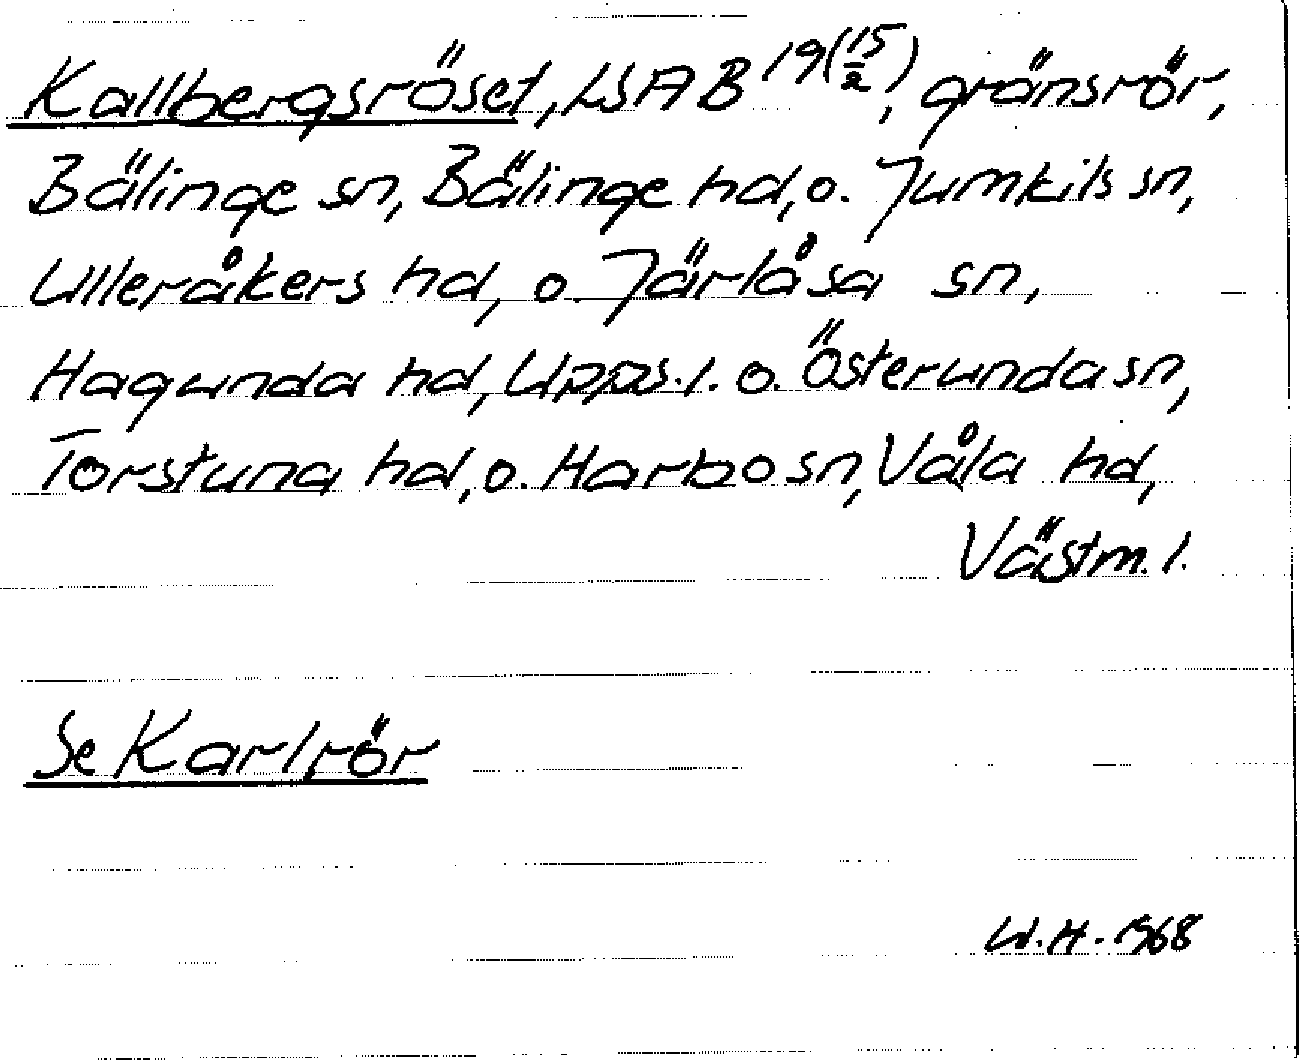 Kallbergsröset, LSA B 19(15/2), gränsrör,
Bälinge sn, Bälinge hd, o. Jumkils sn,
Ulleråkers hd, o. Järlåsa sn,
Hagunda hd, Upps. l. o. Österunda sn,
Torstuna hd, o. Harbo sn, Våla hd,
Västm. l.
Se Karlrör
W.H. 1968